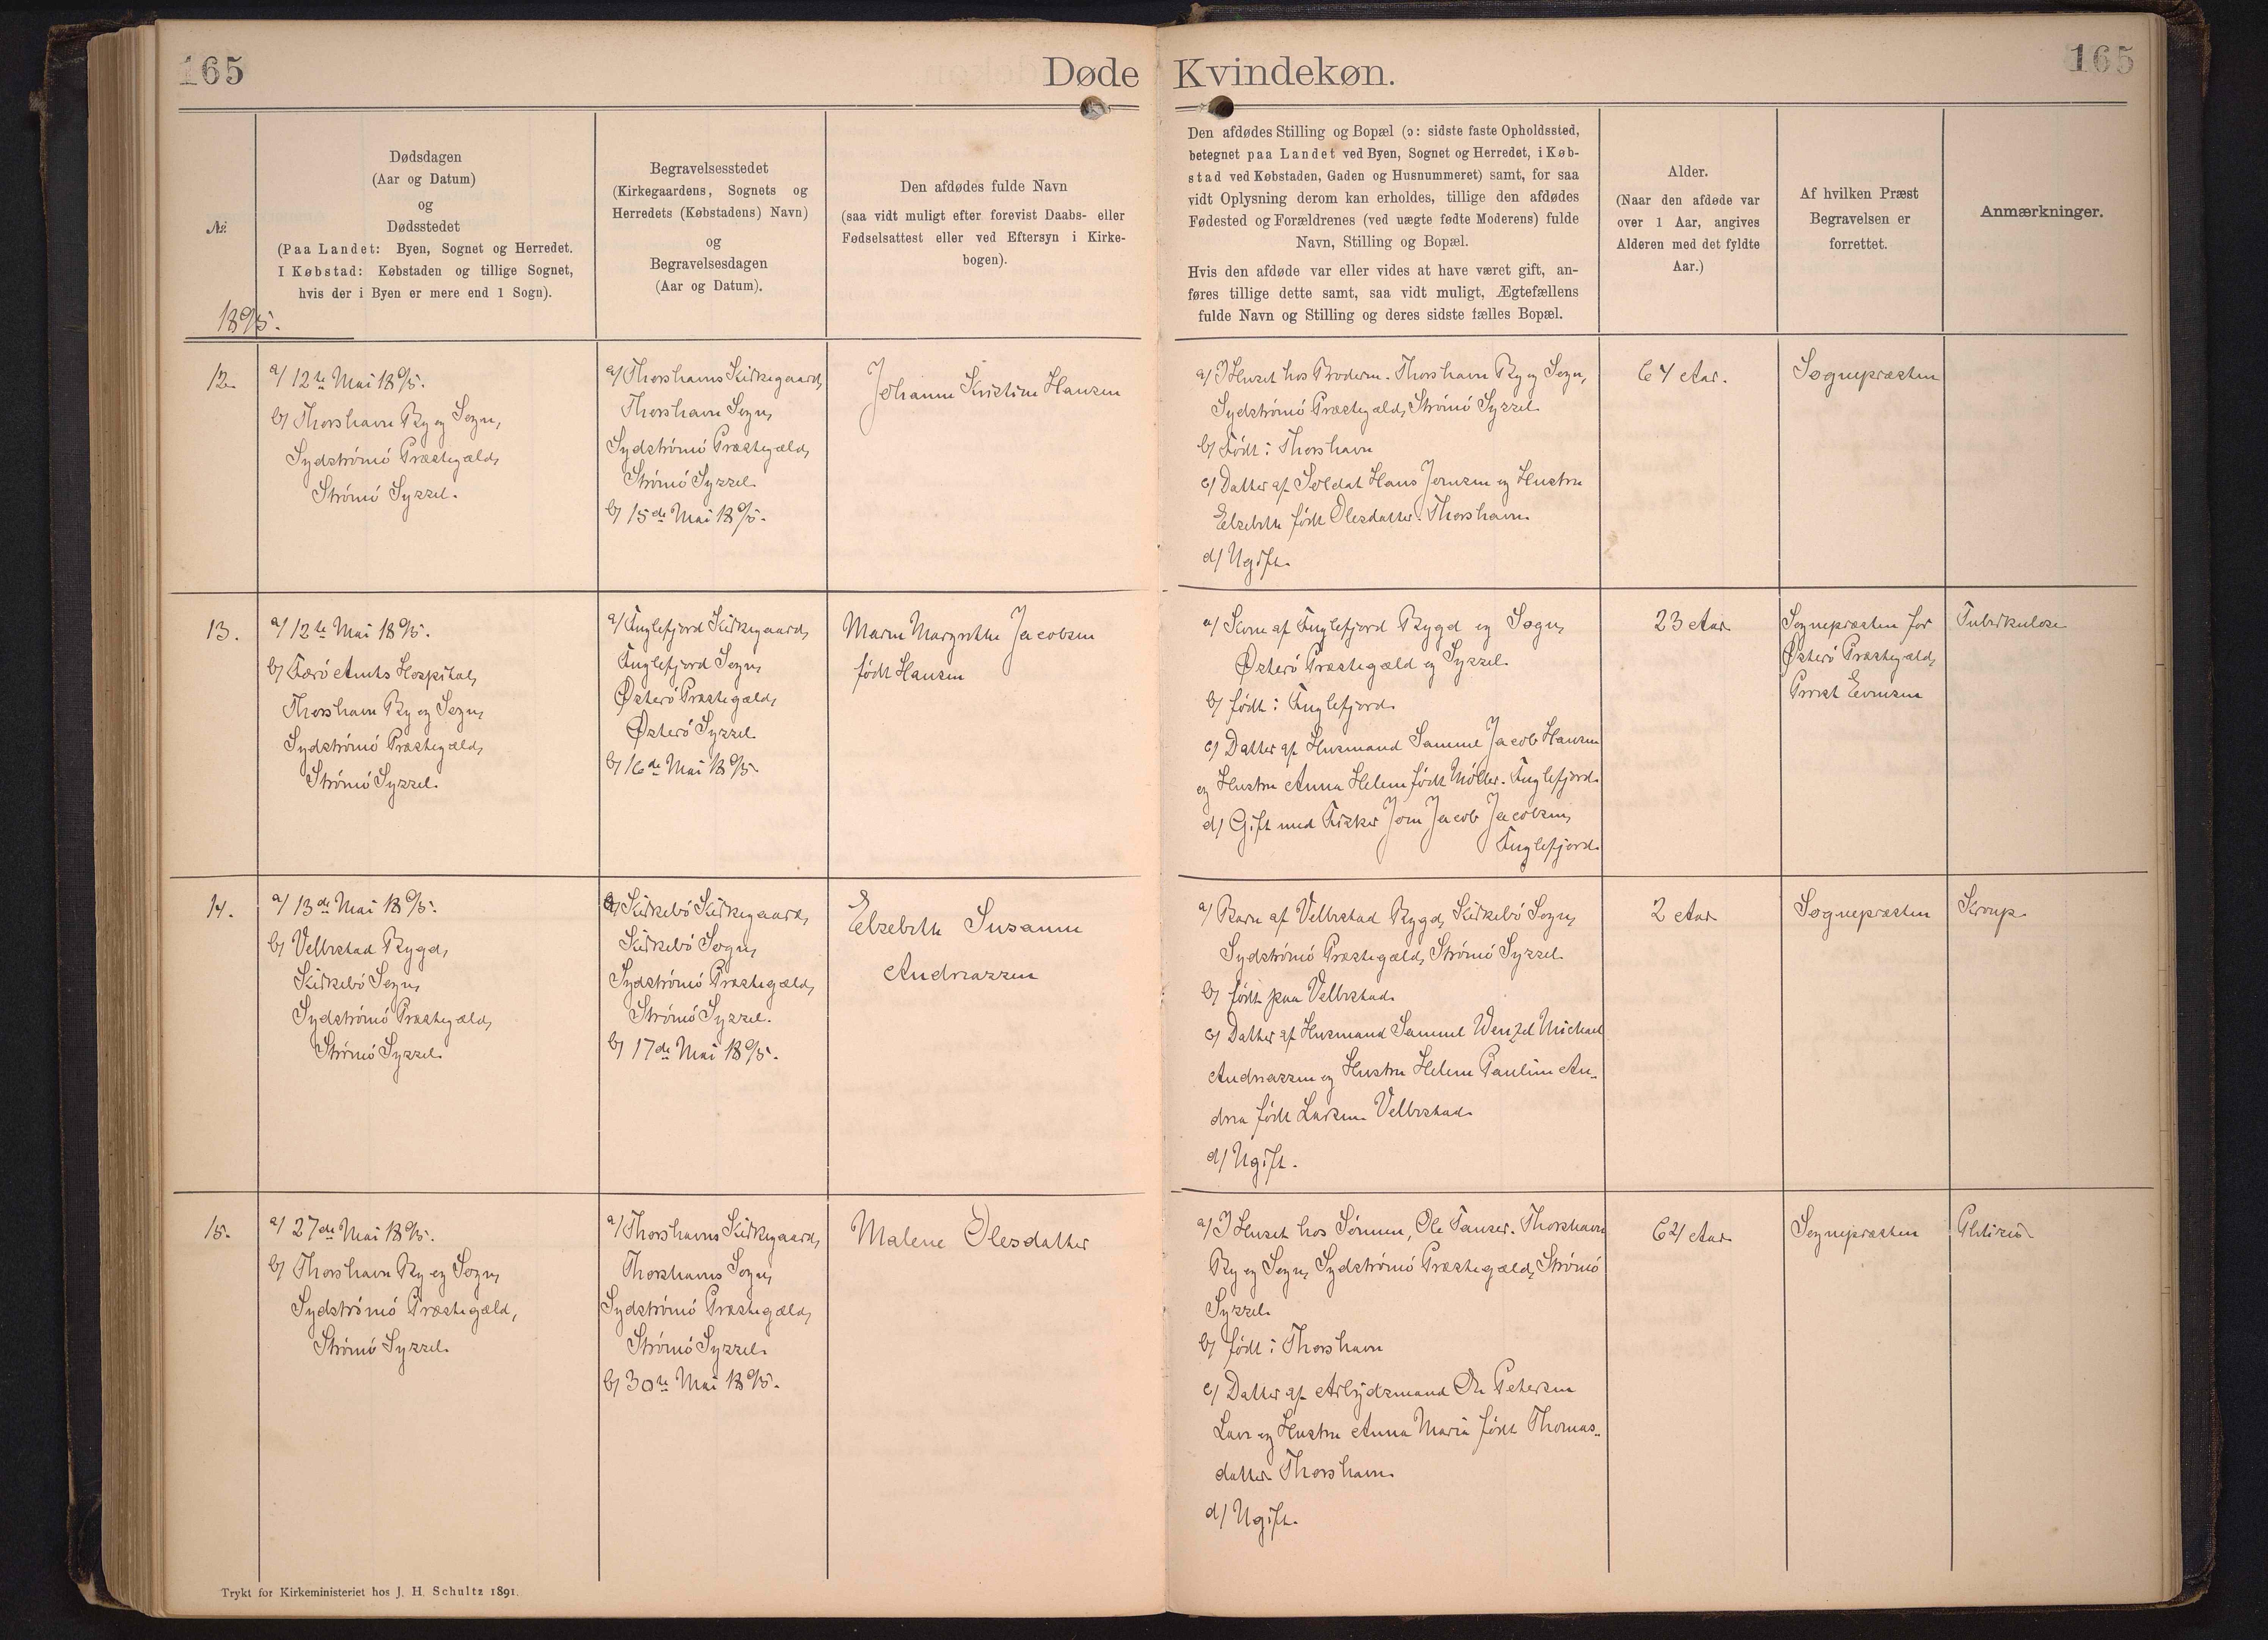 165
Døde Kvindekøn.
165
№
Dødsdagen
(Aar og Datum)
og
Dødsstedet
(Paa Landet: Byen, Sognet og Herredet.
I Købstad: Købstaden og tillige Sognet,
hvis der i Byen er mere end 1 Sogn).
Begravelsesstedet
(Kirkegaardens, Sognets og
Herredets (Købstadens) Navn)
og
Begravelsesdagen
(Aar og Datum).
Den afdødes fulde Navn
(saa vidt muligt efter forevist Daabs- eller
Fødselsattest eller ved Eftersyn i Kirke-
bogen).
Den afdødes Stilling og Bopæl (ɔ: sidste faste Opholdssted,
betegnet paa Landet ved Byen, Sognet og Herredet, i Køb-
stad ved Købstaden, Gaden og Husnummeret) samt, for saa
vidt Oplysning derom kan erholdes, tillige den afdødes
Fødested og Forældrenes (ved uægte fødte Moderens) fulde
Navn, Stilling og Bopæl.
Hvis den afdøde var eller vides at have været gift, an-
føres tillige dette samt, saa vidt muligt, Ægtefællens
fulde Navn og Stilling og deres sidste fælles Bopæl.
Alder.
(Naar den afdøde var
over 1 Aar, angives
Alderen med det fyldte
Aar.)
Af hvilken Præst
Begravelsen er
forrettet.
Anmærkninger.
1895.
12.
a/ 12te Mai 1895.
b/ Thorshavn By og Sogn,
Sydströmö Præstegæld,
Strömö Syssel.
a/ Thorshavns Kirkegaard,
Thorshavn Sogn,
Sydströmö Præstegæld,
Strömö Syssel.
b/ 15de Mai 1895.
Johanne Kristine Hansen
a/ I Huset hos Broderen. Thorshavn By og Sogn,
Sydströmö Præstegæld, Strömö Syssel.
b/ Født i Thorshavn
c/ Datter af Soldat Hans Joensen og Hustru
Elsebeth født Olesdatter. Thorshavn.
d/ Ugift.
64 Aar.
Sognepræsten
13.
a/ 12te Mai 1895.
b/ Færö Amts Hospital,
Thorshavn By og Sogn,
Sydströmö Præstegæld,
Strömö Syssel.
a/ Fuglefjord Kirkegaard,
Fuglefjord Sogn,
Østerö Præstegæld,
Østerö Syssel
b/ 16de Mai 1895.
Maren Margrethe Jacobsen
født Hansen
a/ Kone af Fuglefjord Bygd og Sogn,
Østerö Præstegæld og Syssel.
b/ født i Fuglefjord.
c/ Datter af Husmand Samuel Jacob Hansen
og Hustru Anna Helene født Möller. Fuglefjord.
d/ Gift med Fisker Joen Jacob Jacobsen,
Fuglefjord.
23 Aar
Sognepræsten for
Østerö Præstegæld,
Præst Evensen
Tuberkulose
14.
a/ 13de Mai 1895.
b/ Velbestad Bygd,
Kirkebö Sogn,
Sydströmö Præstegæld,
Strömö Syssel.
a/ Kirkebö Kirkegaard,
Kirkebö Sogn,
Sydströmö Præstegæld,
Strömö Syssel.
b/ 17de Mai 1895.
Elsebeth Susanne
Andreassen
a/ Barn af Velbestad Bygd, Kirkebö Sogn,
Sydströmö Præstegæld, Strömö Syssel.
b/ født paa Velbestad.
c/ Datter af Husmand Samuel Wenzel Michael
Andreassen og Hustru Helene Pauline An-
drea født Larsen. Velbestad.
d/ Ugift.
2 Aar
Sognepræsten
Kroup
15.
a/ 27de Mai 1895.
b/ Thorshavn By og Sogn,
Sydströmö Præstegæld,
Strömö Syssel.
a/ Thorshavns Kirkegaard,
Thorshavns Sogn,
Sydströmö Præstegæld,
Strömö Syssel.
b/ 30te Mai 1895.
Malene Olesdatter
a/ I Huset hos Sönnen, Ole Hanser. Thorshavn
By og Sogn, Sydströmö Præstegæld, Strömö
Syssel.
b/ født i Thorshavn
c/ Datter af Arbejdsmand Ole Petersen
og Hustru Anna Maria født Thomas-
datter. Thorshavn.
d/ Ugift.
62 Aar
Sognepræsten
Phtisis
Trykt for Kirkeministeriet hos J. H. Schultz 1891.